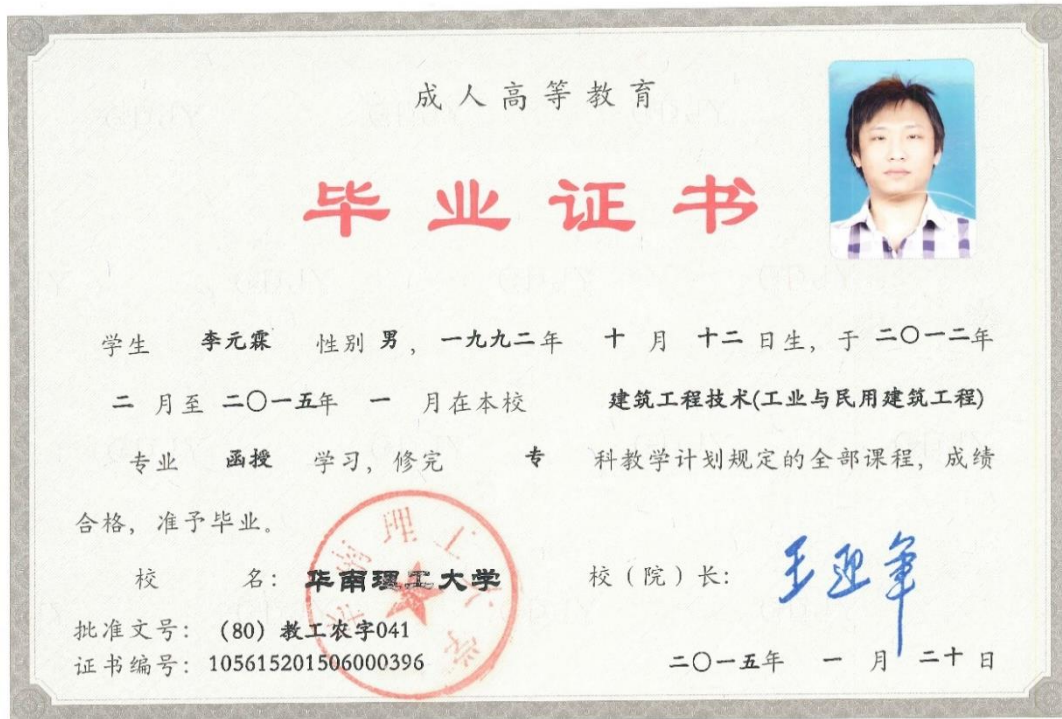 成人高等教育
毕业证书
学生 李元霖 性别 男，一九九二年 十 月 十二 日生，于 二〇一二年
二 月至 二〇一五年 一 月在本校 建筑工程技术(工业与民用建筑工程)
专业 函授 学习，修完 专 科教学计划规定的全部课程，成绩
合格，准予毕业。
校 名：华南理工大学 校（院）长：王迎军
批准文号：（80）教工农字041
证书编号：105615201506000396 二〇一五年 一 月 二十 日
华南理工大学